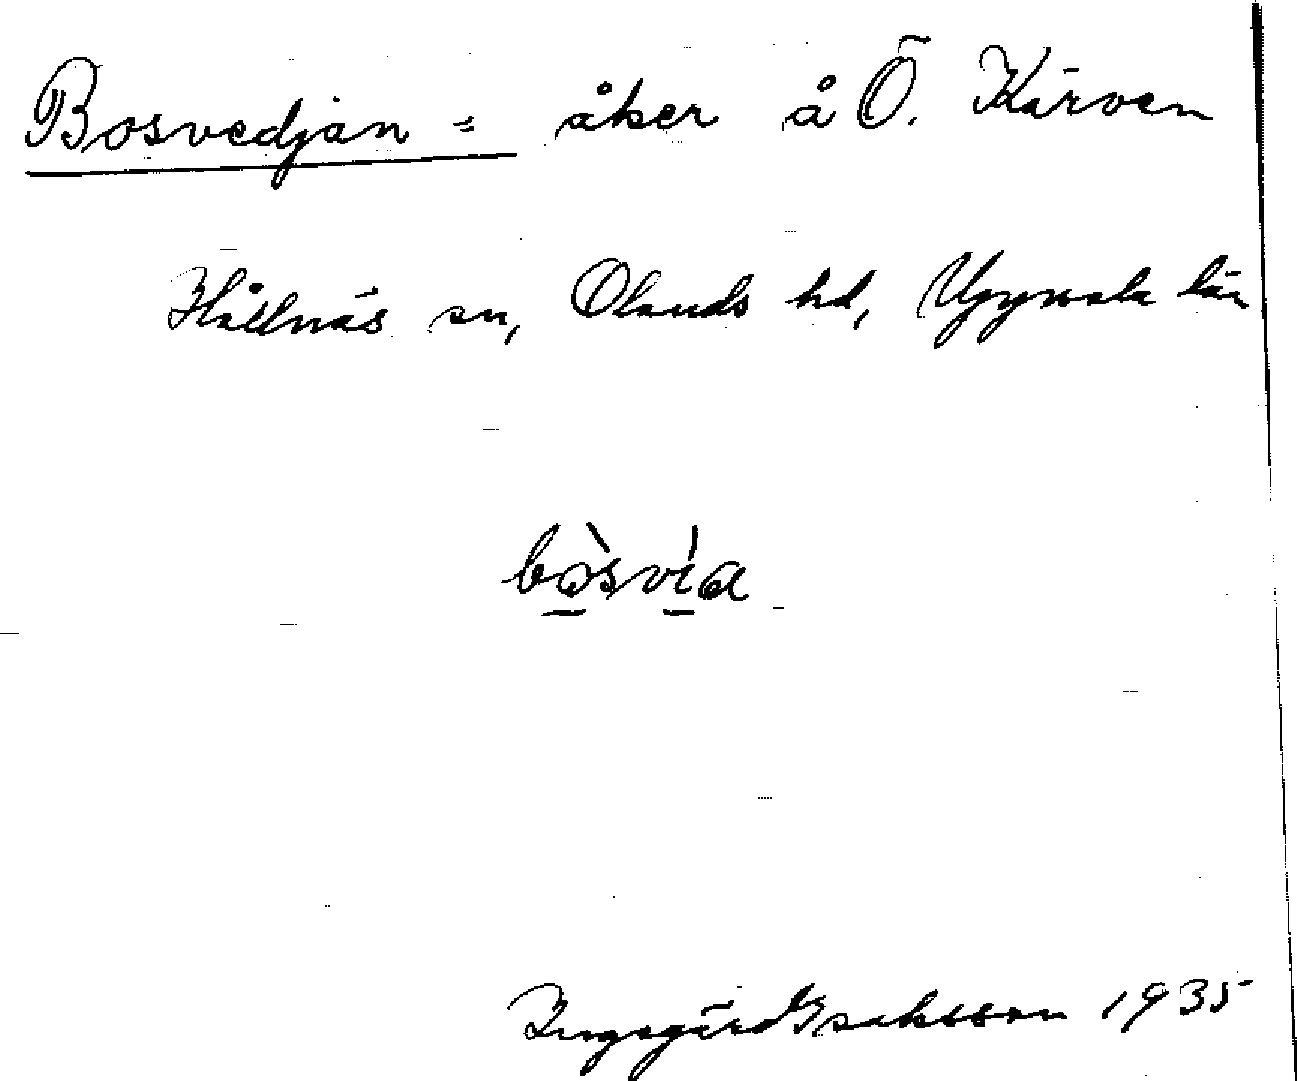 Bosvedjan = åker å Ö. Kärven
Hållnäs sn, Olands hd, Uppsala län
bò̱sví̱a
Ingegärd Isaksson 1935